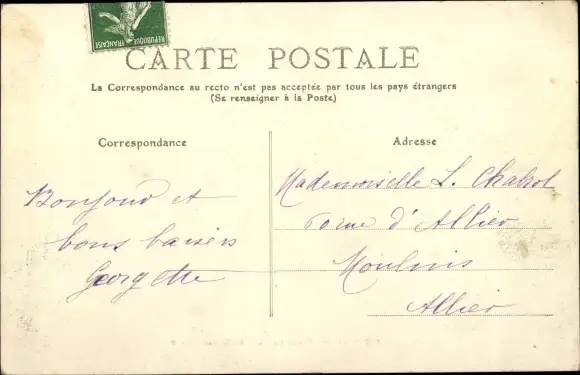 REPUBLIQUE FRANÇAISE
CARTE POSTALE
La Correspondance au recto n'est pas acceptée par tous les pays étrangers
(Se renseigner à la Poste)
Correspondance
Bonjour et
bons baisers
Georgette
Adresse
Mademoiselle L. Chabrol
rue d'Allier
Moulins
Allier